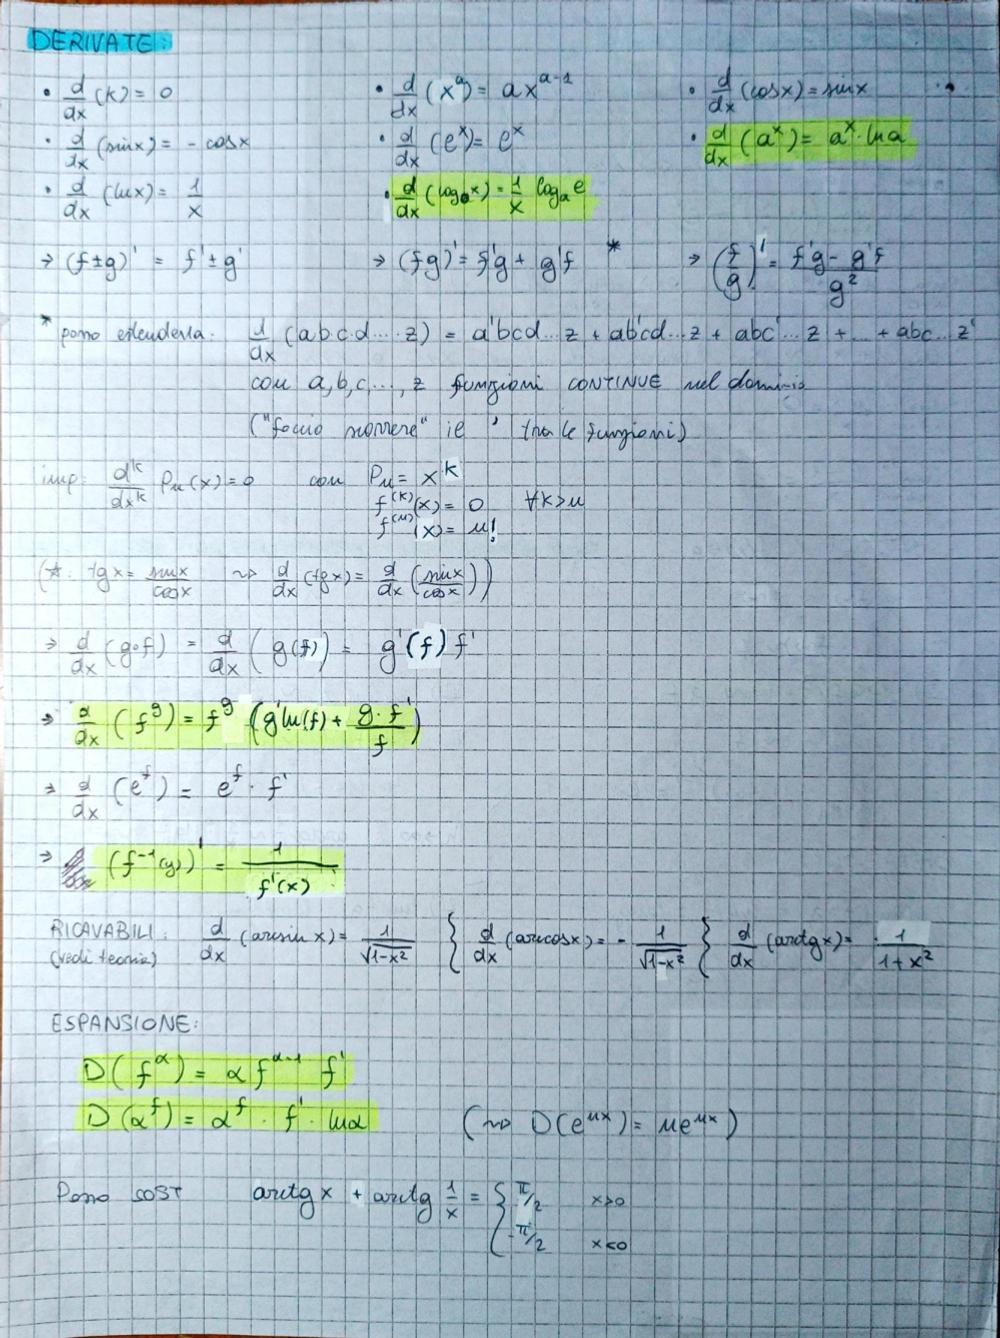 DERIVATE:
• d/dx (k) = 0 • d/dx (x^a) = ax^(a-1) • d/dx (cosx) = sinx
• d/dx (sinx) = - cosx • d/dx (e^x) = e^x • d/dx (a^x) = a^x · ln a
• d/dx (lnx) = 1/x • d/dx (log_a x) = 1/x log_a e
→ (f±g)' = f'±g' → (fg)' = f'g + g'f * → (f/g)' = (f'g - g'f)/g²
* posso estenderla: d/dx (a·b·c·d....·z) = a'bcd...z + ab'cd...z + abc'...z + ... + abc...z'
con a,b,c,...,z funzioni CONTINUE nel dominio
("faccio scorrere" il ' tra le funzioni)
imp: d^k/dx^k Pn(x) = 0 con Pn = x^k
f^(k)(x) = 0 ∀k>n
f^(n)(x) = n!
(*. tgx = sinx/cosx ⇝ d/dx (tgx) = d/dx (sinx/cosx))
→ d/dx (g∘f) = d/dx (g(f)) = g'(f) f'
→ d/dx (f^g) = f^g (g'ln(f) + g·f'/f)
→ d/dx (e^f) = e^f · f'
→ (f^-1(y))' = 1/f'(x)
RICAVABILI: d/dx (arcsin x) = 1/√(1-x²) { d/dx (arccosx) = - 1/√(1-x²) } d/dx (arctgx) = 1/(1+x²)
(vedi teoria)
ESPANSIONE:
D(f^α) = α f^(α-1) f'
D(α^f) = α^f · f' · lnα (⇝ D(e^nx) = ne^nx)
Posso SOST arctg x + arctg 1/x = { π/2 x>0
-π/2 x<0